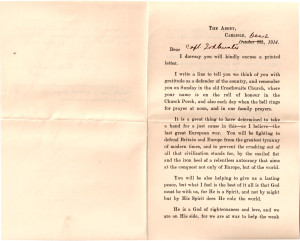 THE ABBEY,
CARLISLE,
October 1914.
Dear Capt
I daresay you will kindly excuse a printed
letter.
I write a line to tell you we think of you with
gratitude as a defender of the country, and remember
you on Sunday in the old Crosthwaite Church, where
your name is on the roll of honour in the
Church Porch, and also each day when the bell rings
for prayer at noon, and in our family prayers.
It is a great thing to have determined to take
a hand for just cause in this—as I believe—the
last great European war. You will be fighting to
defend Britain and Europe from the greatest tyranny
of modern times, and to prevent the crushing out of
all that civilization stands for, by the mailed fist
and the iron heel of a relentless autocracy that aims
at the conquest not only of Europe, but of the world.
You will be also helping to give us a lasting
peace, but what I feel is the best of it all is that God
must be with us, for He is a Spirit, and not by might
but by His Spirit does He rule the world.
He is a God of righteousness and love, and we
are on His side, for we are at war to help the weak